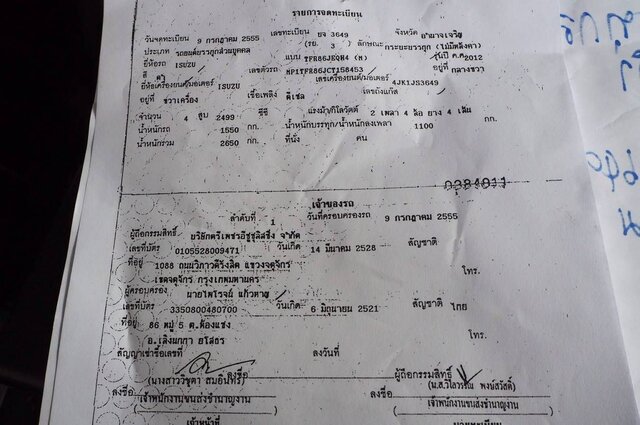 รายการจดทะเบียน
วันจดทะเบียน 9 กรกฎาคม 2555 เลขทะเบียน ยจ 3649 จังหวัด อำนาจเจริญ
ประเภท รถยนต์บรรทุกส่วนบุคคล (รย. 3 ) ลักษณะ กระบะบรรทุก (ไม่มีหลังคา)
ยี่ห้อรถ ISUZU แบบ รุ่นปี ค.ศ 2012
สี ดำ เลขตัวรถ MP1TFR86JCT156453 อยู่ที่ กลางขวา
ยี่ห้อเครื่องยนต์/มอเตอร์ ISUZU เลขเครื่องยนต์/มอเตอร์ 4JK1JS3649
อยู่ที่ ขวาเครื่อง เชื้อเพลิง ดีเซล เลขถังแก๊ส
จำนวน 4 สูบ 2499 ซีซี แรงม้า/กิโลวัตต์ 2 เพลา 4 ล้อ ยาง 4 เส้น
น้ำหนักรถ 1550 กก. น้ำหนักบรรทุก/น้ำหนักลงเพลา 1100 กก.
น้ำหนักรวม 2650 กก. ที่นั่ง คน
เจ้าของรถ
ลำดับที่ 1 วันที่ครอบครองรถ 9 กรกฎาคม 2555
ผู้ถือกรรมสิทธิ์ บริษัทตรีเพชรอีซูซุลิสซิ่ง จำกัด
เลขที่บัตร 0105528009471 วันเกิด 14 มีนาคม 2528 สัญชาติ
ที่อยู่ 1088 ถนนวิภาวดีรังสิต แขวงจตุจักร
เขตจตุจักร กรุงเทพมหานคร โทร.
ผู้ครอบครอง นายไพโรจน์
เลขที่บัตร 3350800480700 วันเกิด 6 มิถุนายน 2521 สัญชาติ ไทย
ที่อยู่ 86 หมู่ 5 ต.ห้องแซง
อ.เลิงนกทา ยโสธร โทร.
สัญญาเช่าซื้อเลขที่ ลงวันที่
ลงชื่อ ผู้ถือกรรมสิทธิ์
ลงชื่อ เจ้าพนักงานขนส่งชำนาญงาน ลงชื่อ เจ้าพนักงานขนส่งชำนาญงาน
เจ้าหน้าที่ นายทะเบียน